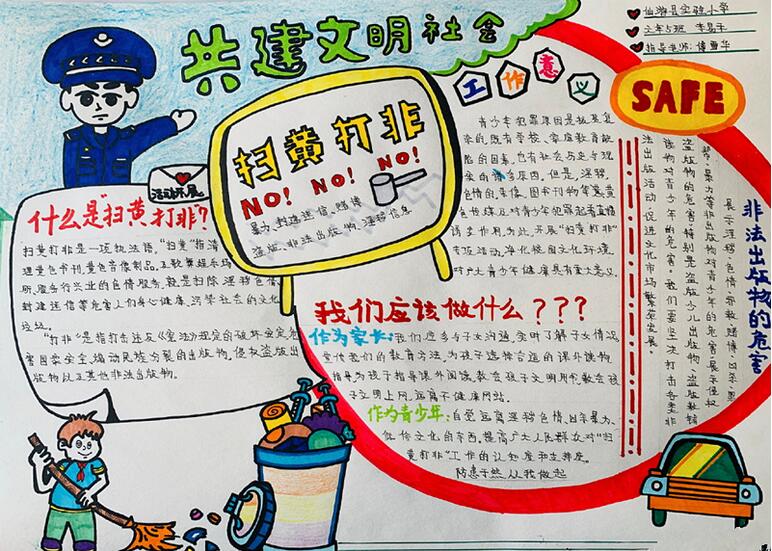 共建文明社会
仙游县实验小学
六年5班 李易平
指导老师:傅曹华
工作意义
SAFE
扫黄打非
NO! NO! NO!
暴力、封建迷信、赌博
盗版、非法出版物、淫秽信息
活动开展
什么是"扫黄打非"?
扫黄打非是一项执法语。"扫黄"指清
理黄色书刊、黄色音像制品,及歌舞娱乐场
所、服务行业的色情服务,就是扫除淫秽色情、
封建迷信等危害人们身心健康、污染社会的文化
垃圾。
"打非"是指打击违反《宪法》规定的破坏社会安定危
害国家安全、煽动民族分裂的出版物,侵权盗版出
版物以及其他非法出版物。
青少年犯罪原因是极其复
杂的,既有学校、家庭教育缺
陷的因素,也有社会历史与现
实的诸多原因。但是,淫秽
色情的音像、图书刊物等黄黄
色传媒及对青少年犯罪起着直接
诱导作用。为此,开展"扫黄打非"
专项活动,净化校园文化环境,
对广大青少年健康具有重大意义。
我们应该做什么???
作为家长:我们应多与子女沟通,实时了解子女情况,
宣传我们的教育方法。为孩子选择合适的课外读物。
指导为孩子指导课外阅读,教会孩子文明用网,教会孩
子文明上网,远离不健康网站。
作为青少年:自觉远离淫秽色情、凶杀暴力、
低俗文化的东西,提高广大人民群众对"扫
黄打非"工作的认知度和支持度。
防患于然,从我做起
非法出版物的危害
展示淫秽、色情、宗教赌博、凶杀、恶
势、暴力等非法出版物对青少年的危害,展示侵权
盗版物的危害,特别是盗版少儿出版物、盗版教辅
读物对青少年的危害。我们要坚决打击各类非
法出版活动,促进文化市场繁荣发展。